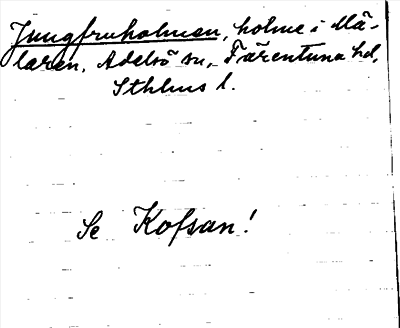 Jungfruholmen, holme i Mä-
laren, Adelsö sn, Färentuna hd,
Sthlms l.
Se Kofsan!